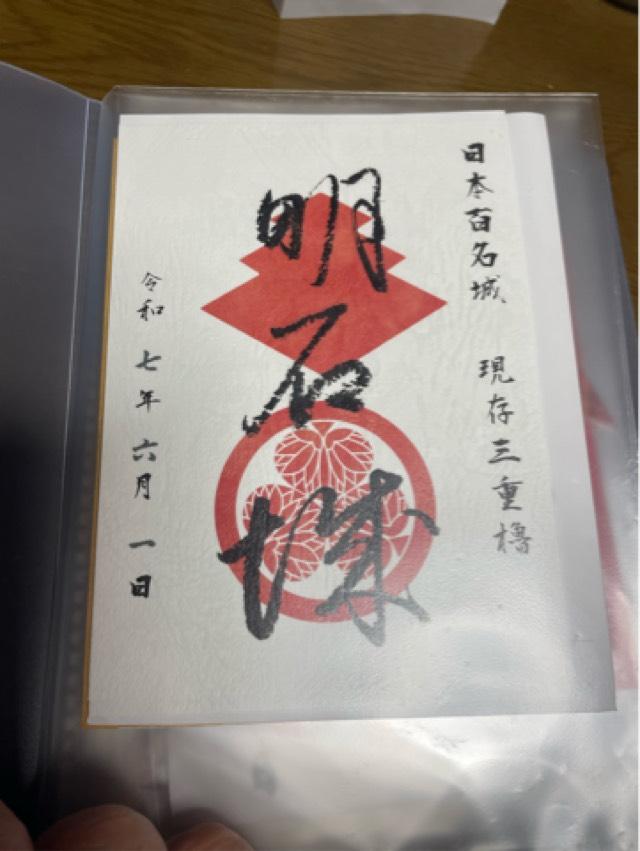 日本百名城 現存三重櫓
明石城
令和七年六月一日